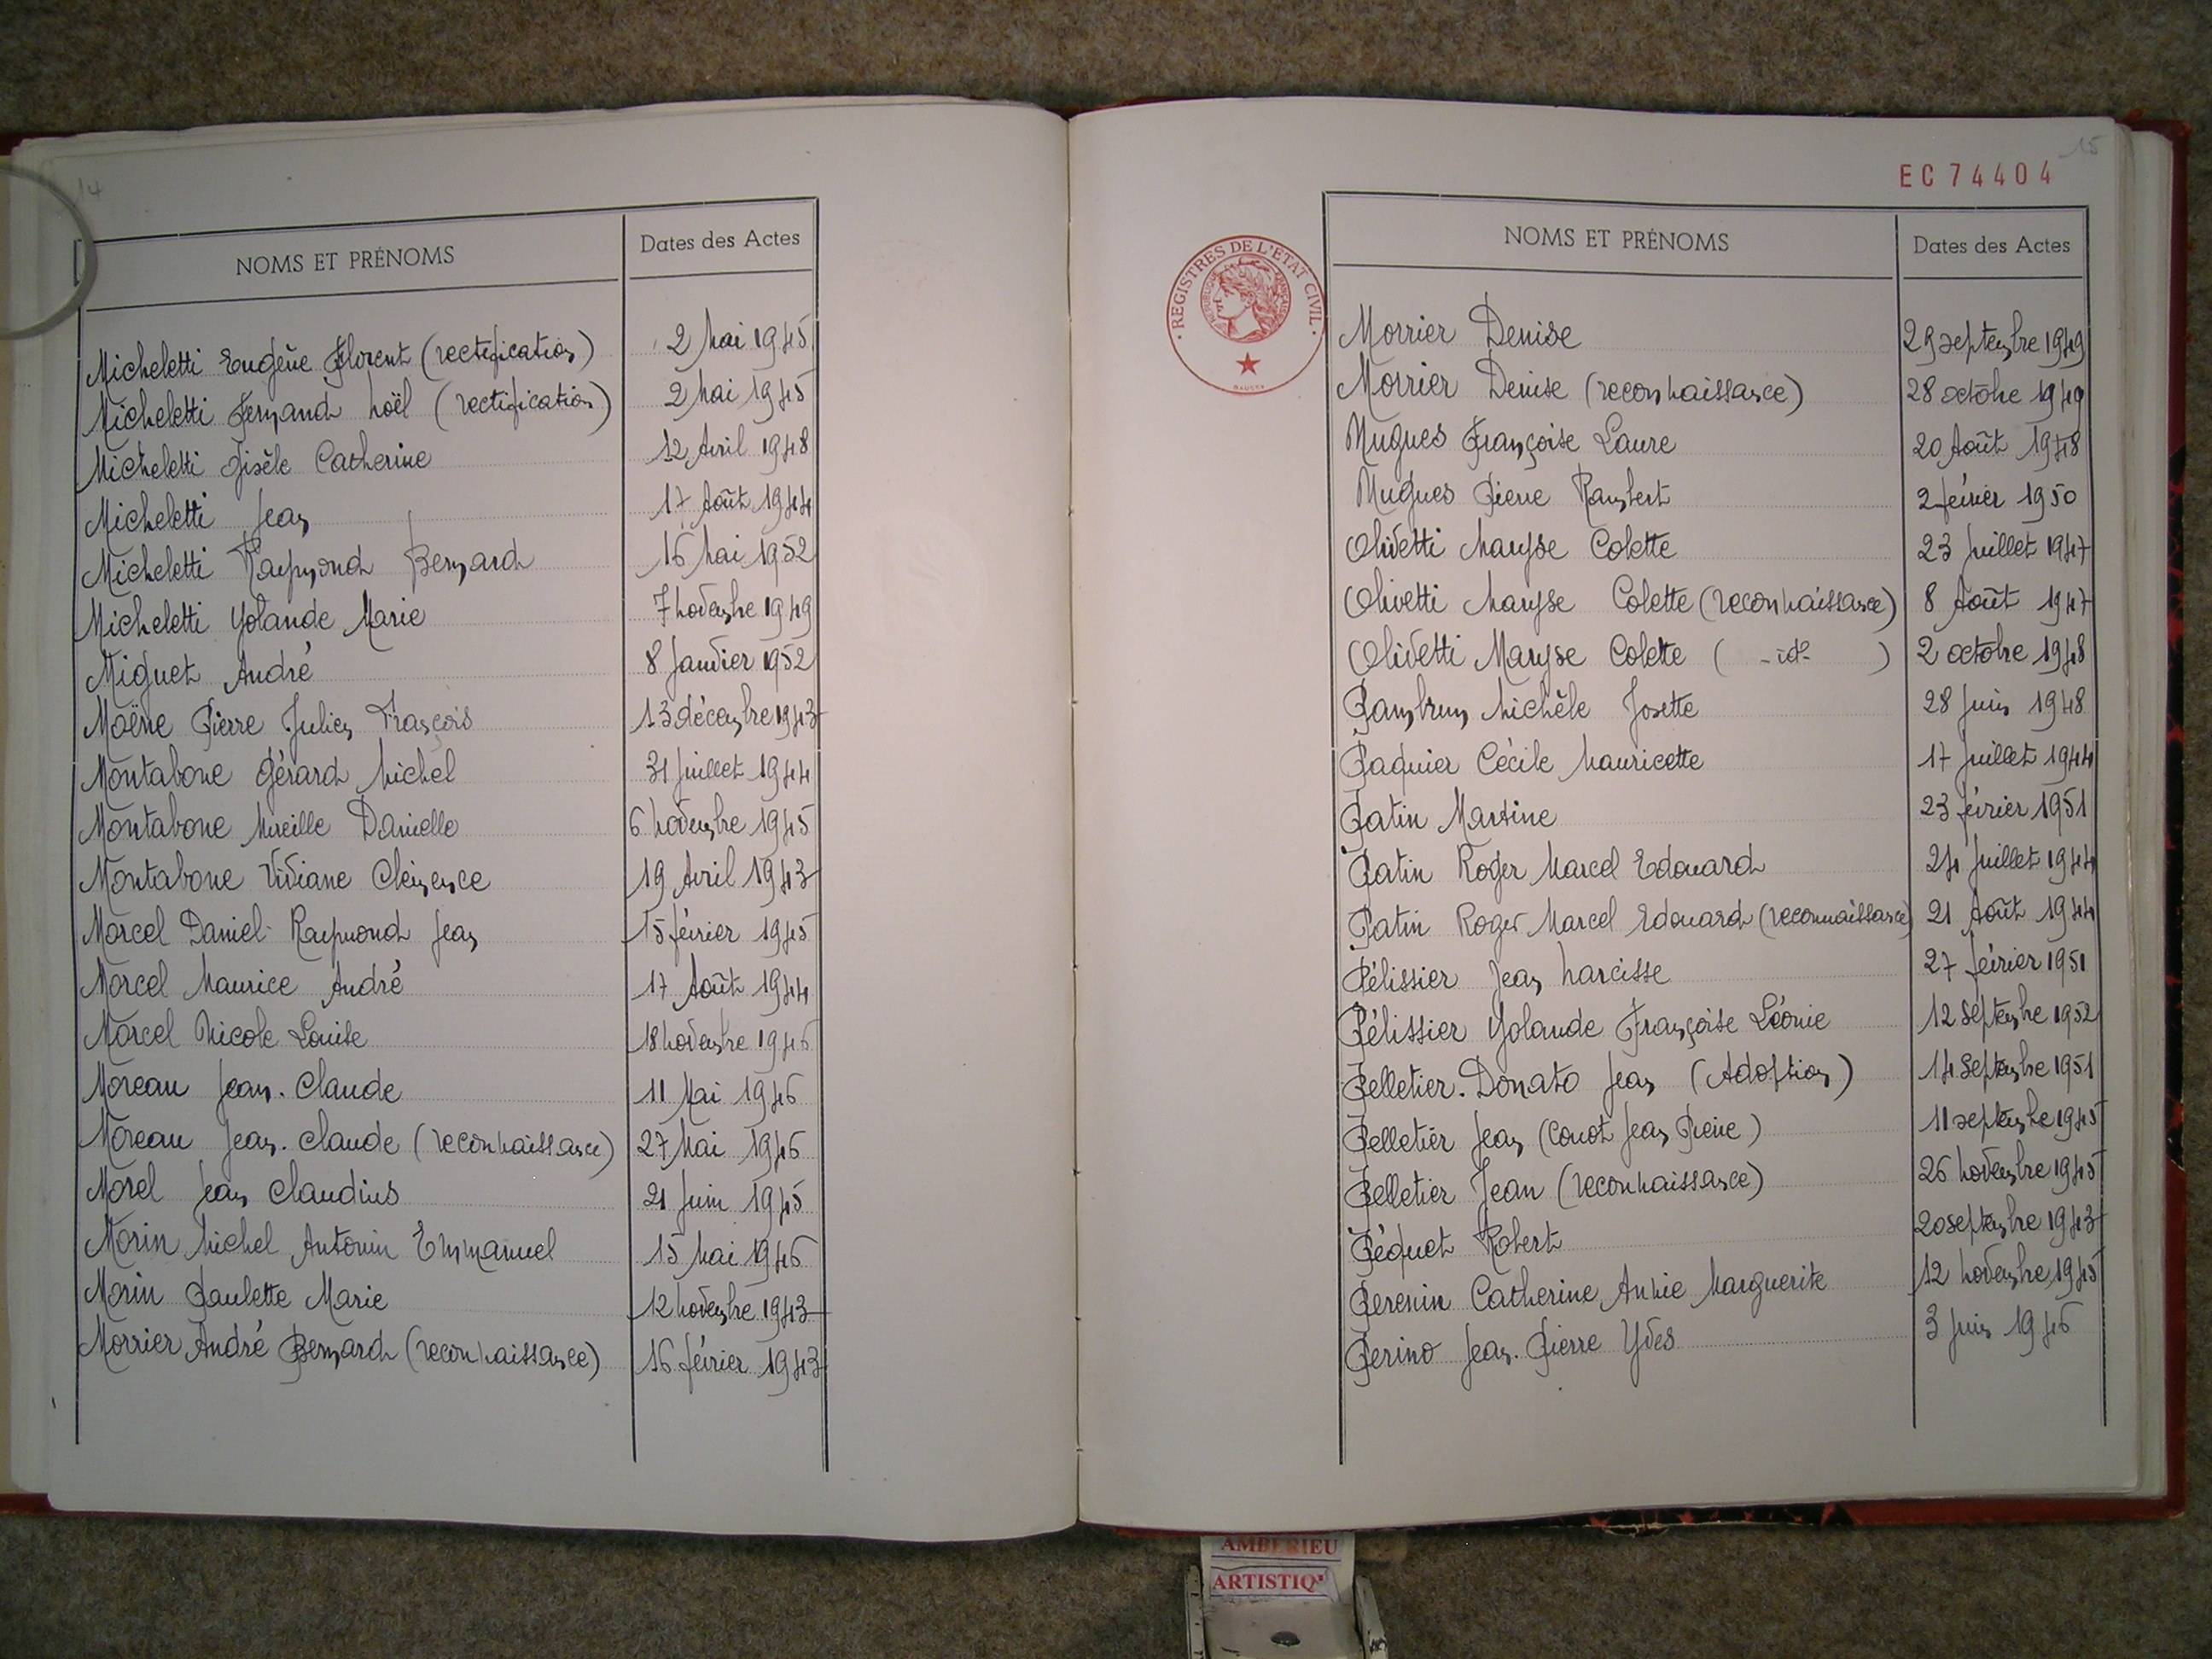 14
NOMS ET PRÉNOMS Dates des Actes
Micheletti Eugène Florent (rectification) 2 Mai 1945
Micheletti Fernand Noël (rectification) 2 Mai 1945
Micheletti Gisèle Catherine 12 Avril 1948
Micheletti Jean 17 Août 1944
Micheletti Raymond Bernard 16 Mai 1952
Micheletti Yolande Marie 7 Novembre 1949
Miguet André 8 Janvier 1952
Moëne Pierre Julien François 13 décembre 1943
Montabone Gérard Michel 31 Juillet 1944
Montabone Mireille Danielle 6 Novembre 1945
Montabone Viviane Clémence 19 Avril 1943
Morcel Daniel Raymond Jean 15 février 1945
Morcel Maurice André 17 Août 1944
Morcel Nicole Louise 18 Novembre 1946
Moreau Jean-Claude 11 Mai 1946
Moreau Jean-Claude (reconnaissance) 27 Mai 1946
Morel Jean Claudius 21 Juin 1945
Morin Michel Antonin Emmanuel 15 Mai 1946
Morin Paulette Marie 12 Novembre 1943
Morrier André Bernard (reconnaissance) 16 février 1943
15
EC 74404
· REGISTRES DE L'ETAT CIVIL ·
NOMS ET PRÉNOMS Dates des Actes
Morrier Denise 29 septembre 1949
Morrier Denise (reconnaissance) 28 octobre 1949
Mugues Françoise Laure 20 Août 1948
Mugues Pierre Rambert 2 février 1950
Olivetti Maryse Colette 23 Juillet 1947
Olivetti Maryse Colette (reconnaissance) 8 Août 1947
Olivetti Maryse Colette ( -id- ) 2 octobre 1948
Pambrun Michèle Josette 28 Juin 1948
Paquier Cécile Mauricette 17 Juillet 1944
Patin Martine 23 février 1951
Patin Roger Marcel Edouard 24 Juillet 1944
Patin Roger Marcel Edouard (reconnaissance) 21 Août 1944
Pélissier Jean Narcisse 27 février 1951
Pélissier Yolande Françoise Léonie 12 Septembre 1952
Pelletier-Donato Jean (Adoption) 14 Septembre 1951
Pelletier Jean (Conot Jean Pierre) 11 septembre 1945
Pelletier Jean (reconnaissance) 26 Novembre 1945
Péquet Robert 20 septembre 1943
Perenin Catherine Annie Marguerite 12 Novembre 1945
Perino Jean-Pierre Yves 3 Juin 1946
AMBERIEU
ARTISTIQ